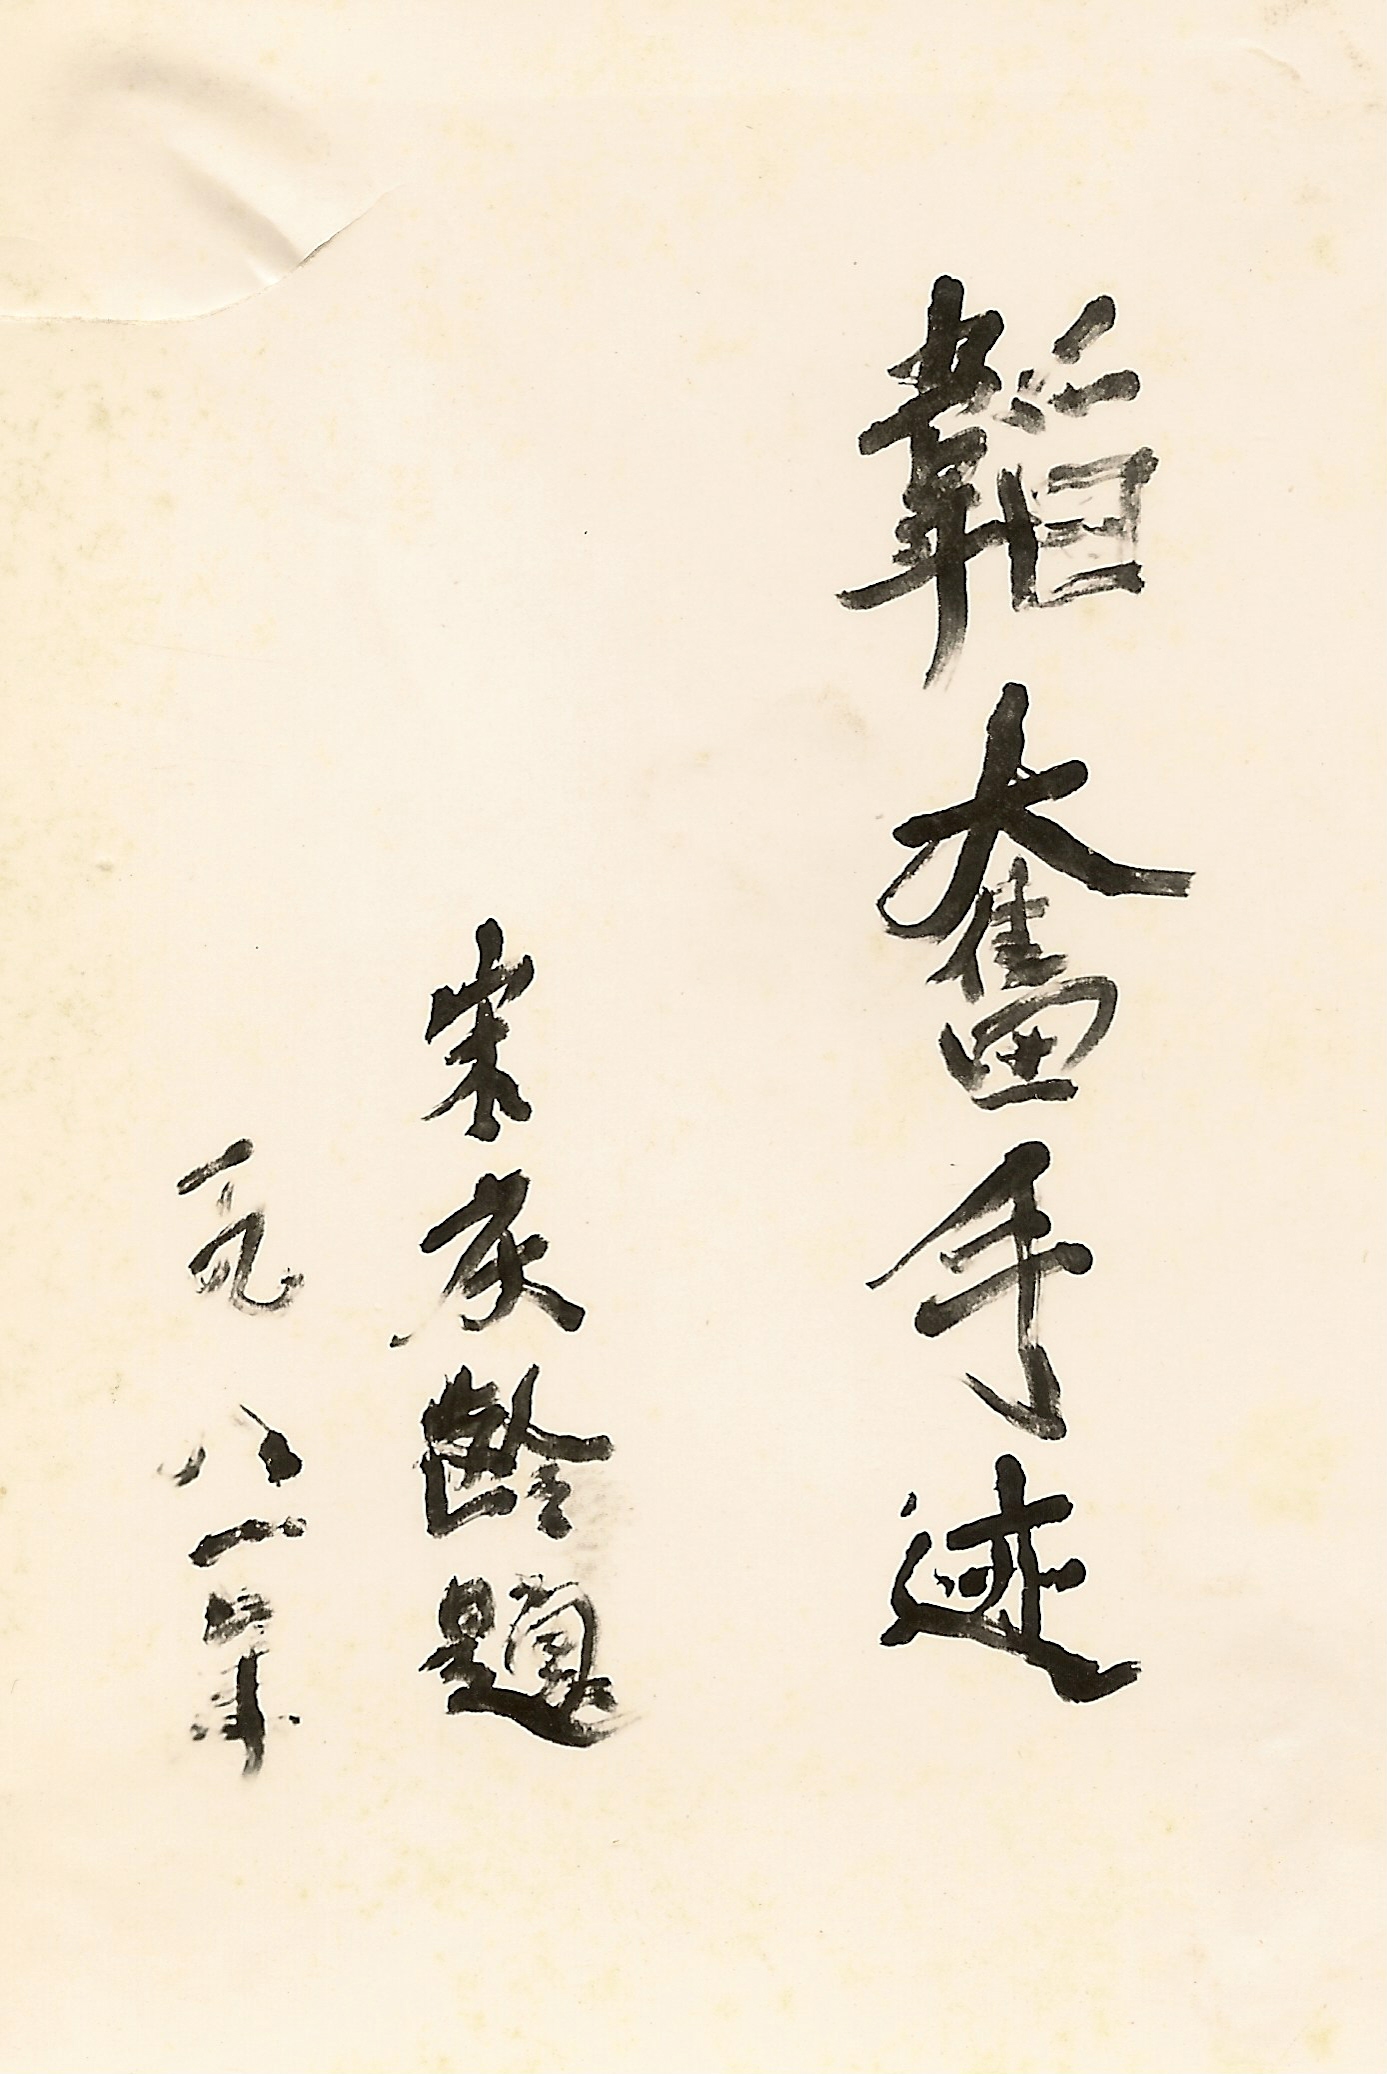 韜奮手迹
宋庆齡題
一九八一年